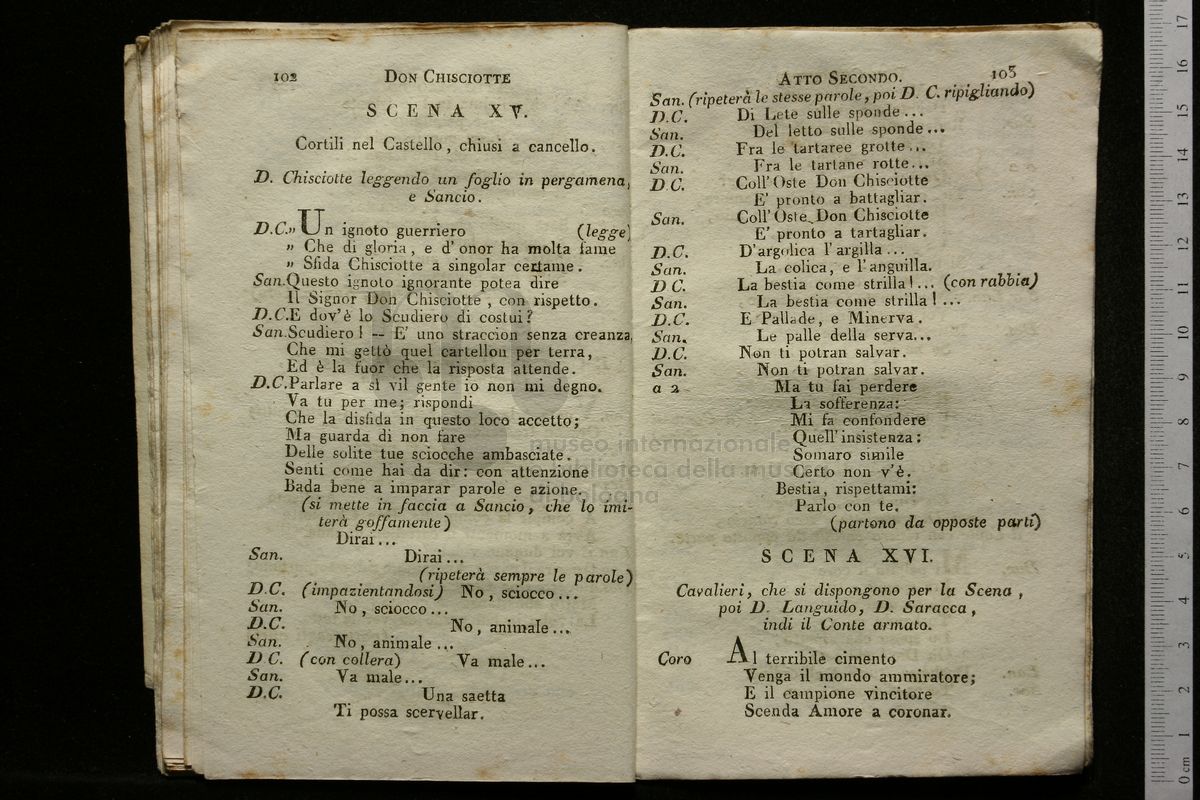 102 DON CHISCIOTTE
SCENA XV.
Cortili nel Castello, chiusi a cancello.
D. Chisciotte leggendo un foglio in pergamena,
e Sancio.
D.C.» Un ignoto guerriero (legge)
» Che di gloria, e d'onor ha molta fame
» Sfida Chisciotte a singolar certame.
San.Questo ignoto ignorante potea dire
Il Signor Don Chisciotte, con rispetto.
D.C.E dov'è lo Scudiero di costui?
San.Scudiero! -- E' uno straccion senza creanza,
Che mi gettò quel cartellon per terra,
Ed è la fuor che la risposta attende.
D.C.Parlare a sì vil gente io non mi degno.
Va tu per me; rispondi
Che la disfida in questo loco accetto;
Ma guarda di non fare
Delle solite tue sciocche ambasciate.
Senti come hai da dir: con attenzione
Bada bene a imparar parole e azione.
(si mette in faccia a Sancio, che lo imi-
terà goffamente)
Dirai...
San. Dirai...
(ripeterà sempre le parole)
D.C. (impazientandosi) No, sciocco...
San. No, sciocco...
D.C. No, animale...
San. No, animale...
D C. (con collera) Va male...
San. Va male...
D.C. Una saetta
Ti possa scervellar.
ATTO SECONDO. 103
San. (ripeterà le stesse parole, poi D. C. ripigliando)
D.C. Di Lete sulle sponde...
San. Del letto sulle sponde...
D.C. Fra le tartaree grotte...
San. Fra le tartane rotte...
D C. Coll'Oste Don Chisciotte
E' pronto a battagliar.
San. Coll'Oste Don Chisciotte
E' pronto a tartagliar.
D.C. D'argolica l'argilla...
San. La colica, e l'anguilla.
D C. La bestia come strilla!... (con rabbia)
San. La bestia come strilla!...
D.C. E Pallade, e Minerva.
San. Le palle della serva...
D.C. Non ti potran salvar.
San. Non ti potran salvar.
a 2 Ma tu fai perdere
La sofferenza:
Mi fa confondere
Quell'insistenza:
Somaro simile
Certo non v'è.
Bestia, rispettami:
Parlo con te.
(partono da opposte parti)
SCENA XVI.
Cavalieri, che si dispongono per la Scena,
poi D. Languido, D. Saracca,
indi il Conte armato.
Coro Al terribile cimento
Venga il mondo ammiratore;
E il campione vincitore
Scenda Amore a coronar.
museo internazionale
biblioteca della mus
di bologna
0 cm 1 2 3 4 5 6 7 8 9 10 11 12 13 14 15 16 17